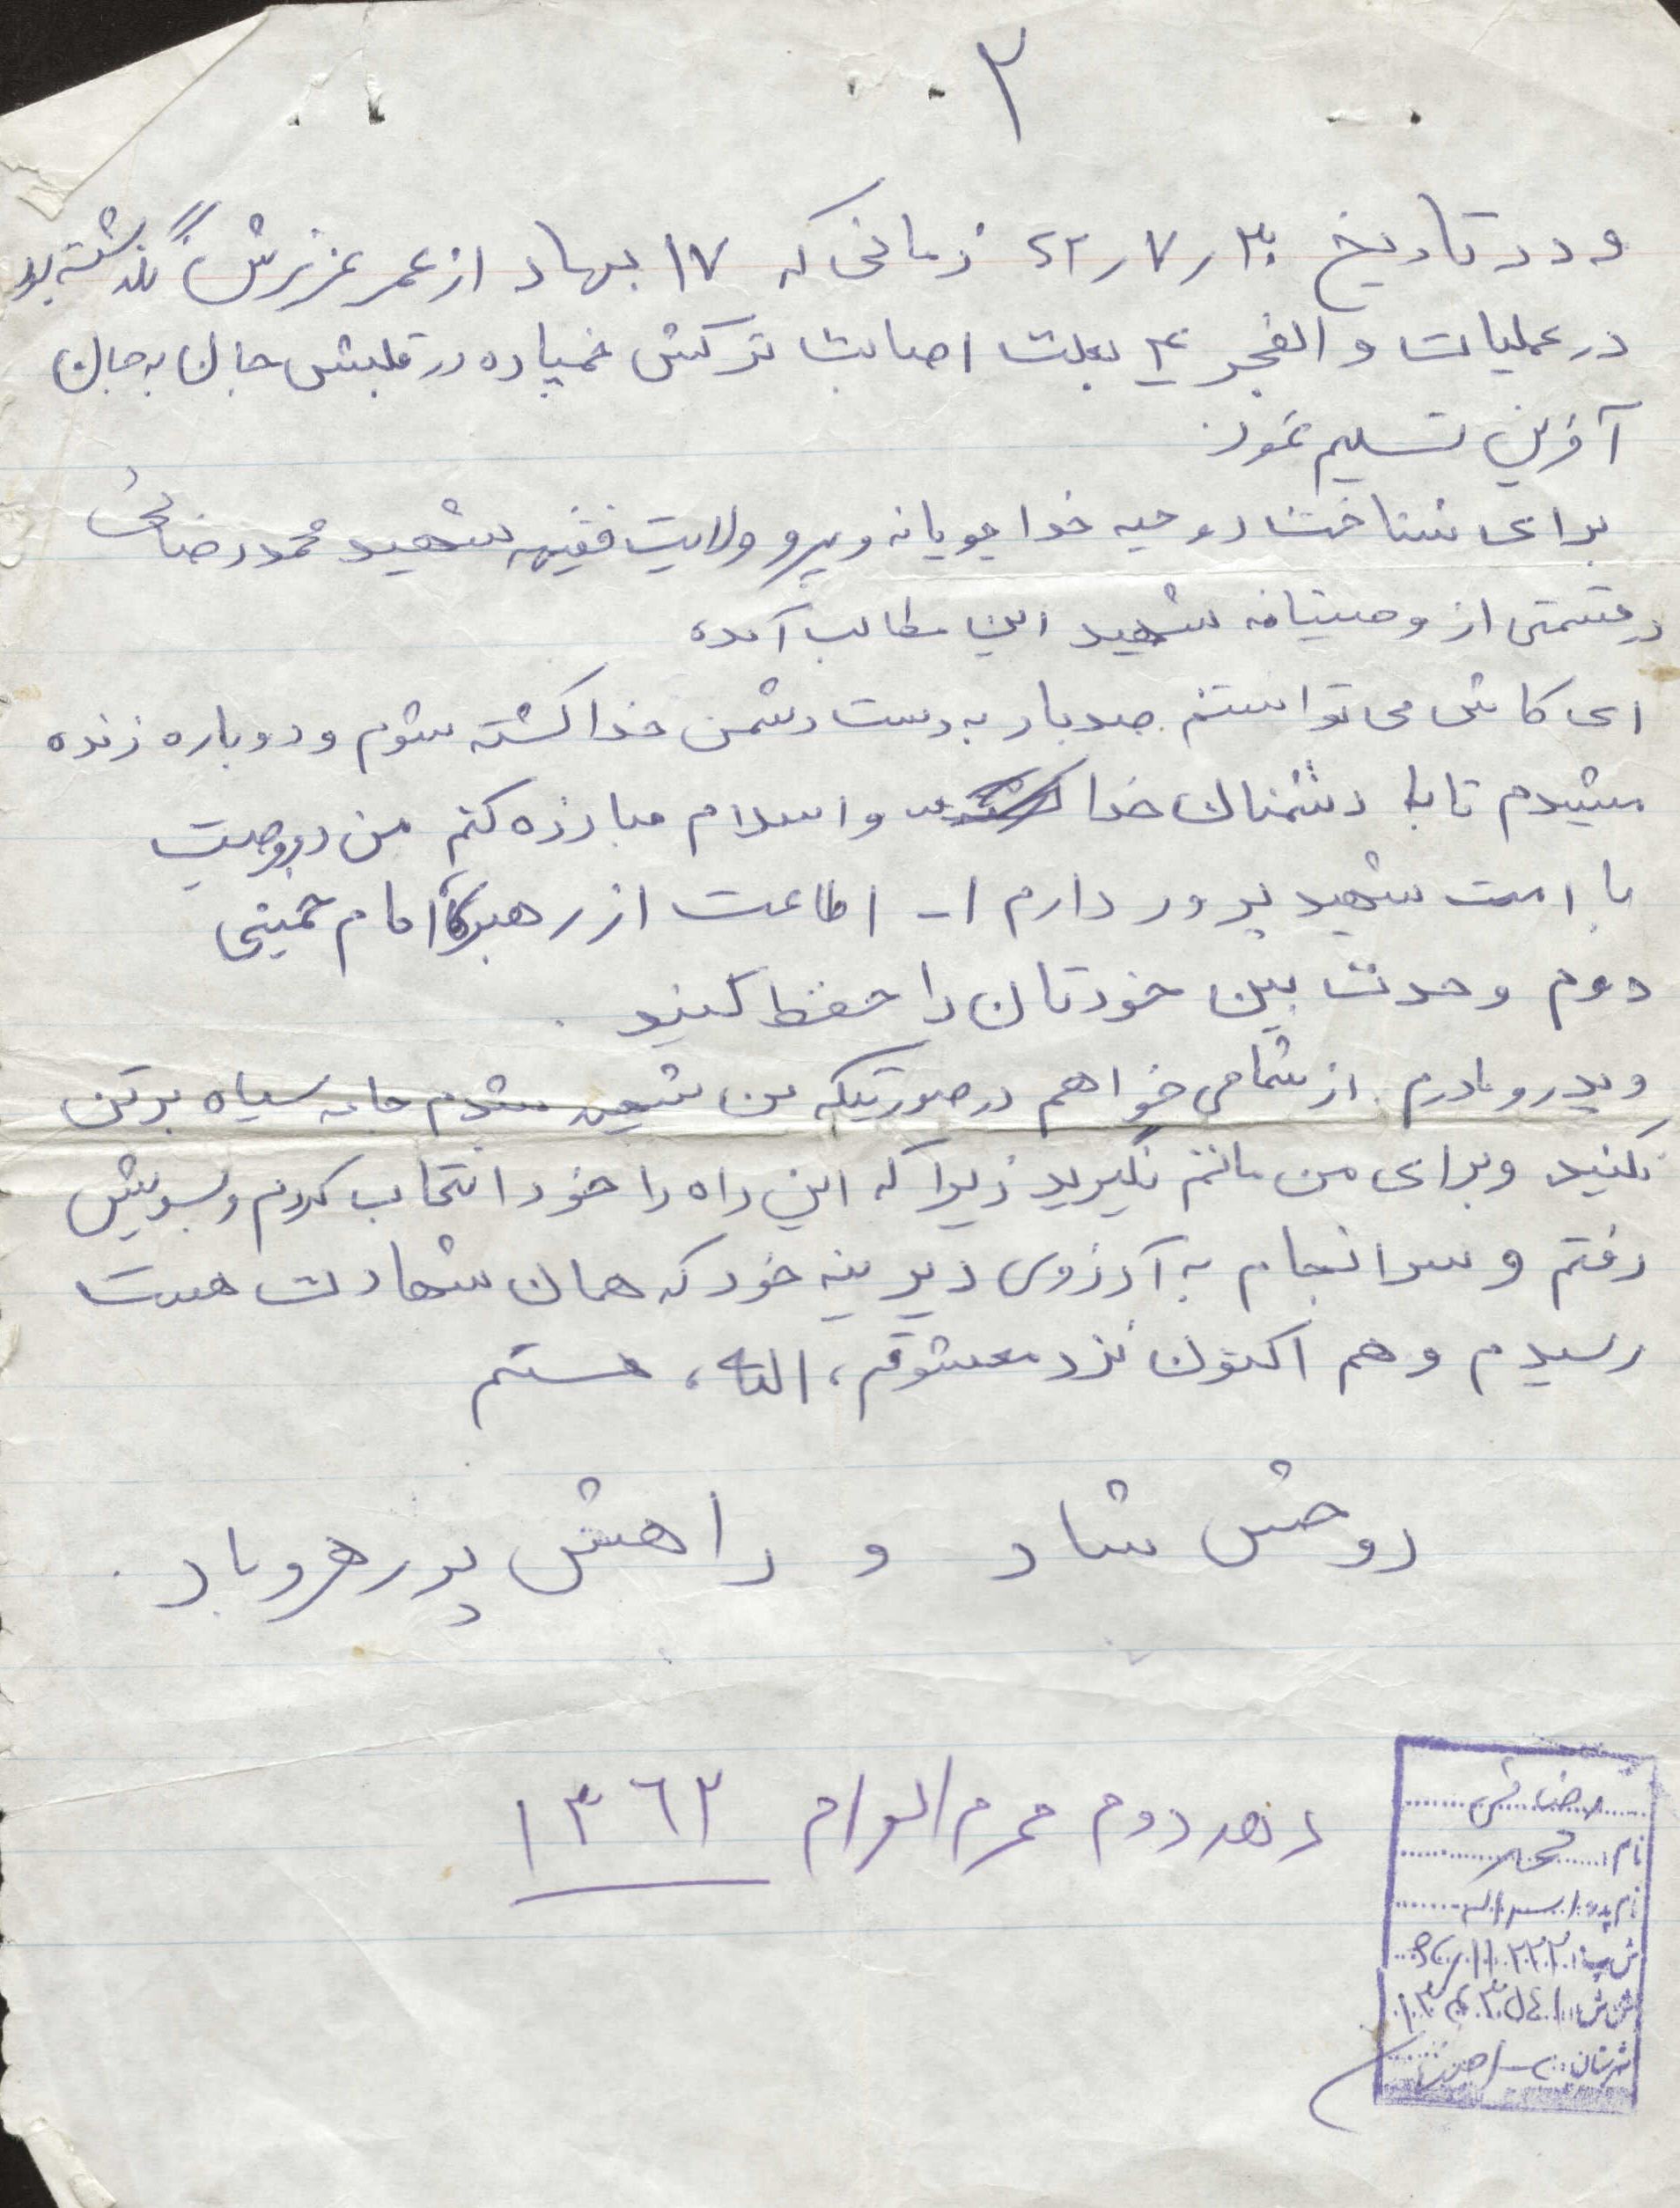 ۲
و در تاریخ ۶۲/۷/۳۰ زمانی که ۱۷ بهار از عمر عزیزش گذشته بود
در عملیات والفجر ۴ بعلت اصابت ترکش خمپاره در قلبش جان به جان
آفرین تسلیم نمود.
برای شناخت روحیه خداجویانه و پیرو ولایت فقیه شهید محمد رضائی
در قسمتی از وصیتنامه شهید این مطالب آمده
ای کاش می توانستم صدبار به دست دشمن خدا کشته شوم و دوباره زنده
میشدم تا با دشمنان خدا و اسلام مبارزه کنم من دو وصیت
با امت شهید پرور دارم ۱- اطاعت از رهبر امام خمینی
دوم وحدت بین خودتان را حفظ کنید.
و پدر و مادرم از شما می خواهم در صورتیکه من شهید شدم جامه سیاه بر تن
نکنید و برای من ماتم نگیرید زیرا که این راه را خود انتخاب کردم و بسویش
رفتم و سرانجام به آرزوی دیرینه خود که همان شهادت هست
رسیدم و هم اکنون نزد معشوقم، الله، هستم
روحش شاد و راهش پر رهرو باد.
دهه دوم محرم الحرام ۱۳۶۳
رضائی
نام: محمد
نام پدر:
ش پ:
ش ش:
شهرستان: